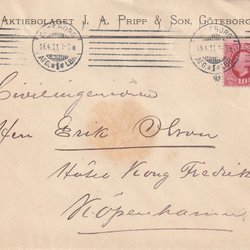 AKTIEBOLAGET J. A. PRIPP & SON, GÖTEBORG
GÖTEBORG
18.4.11.1-2
Civilingeniören
Herr Erik Olson
Hôtel Kong Fredrik
Köpenhamn
10